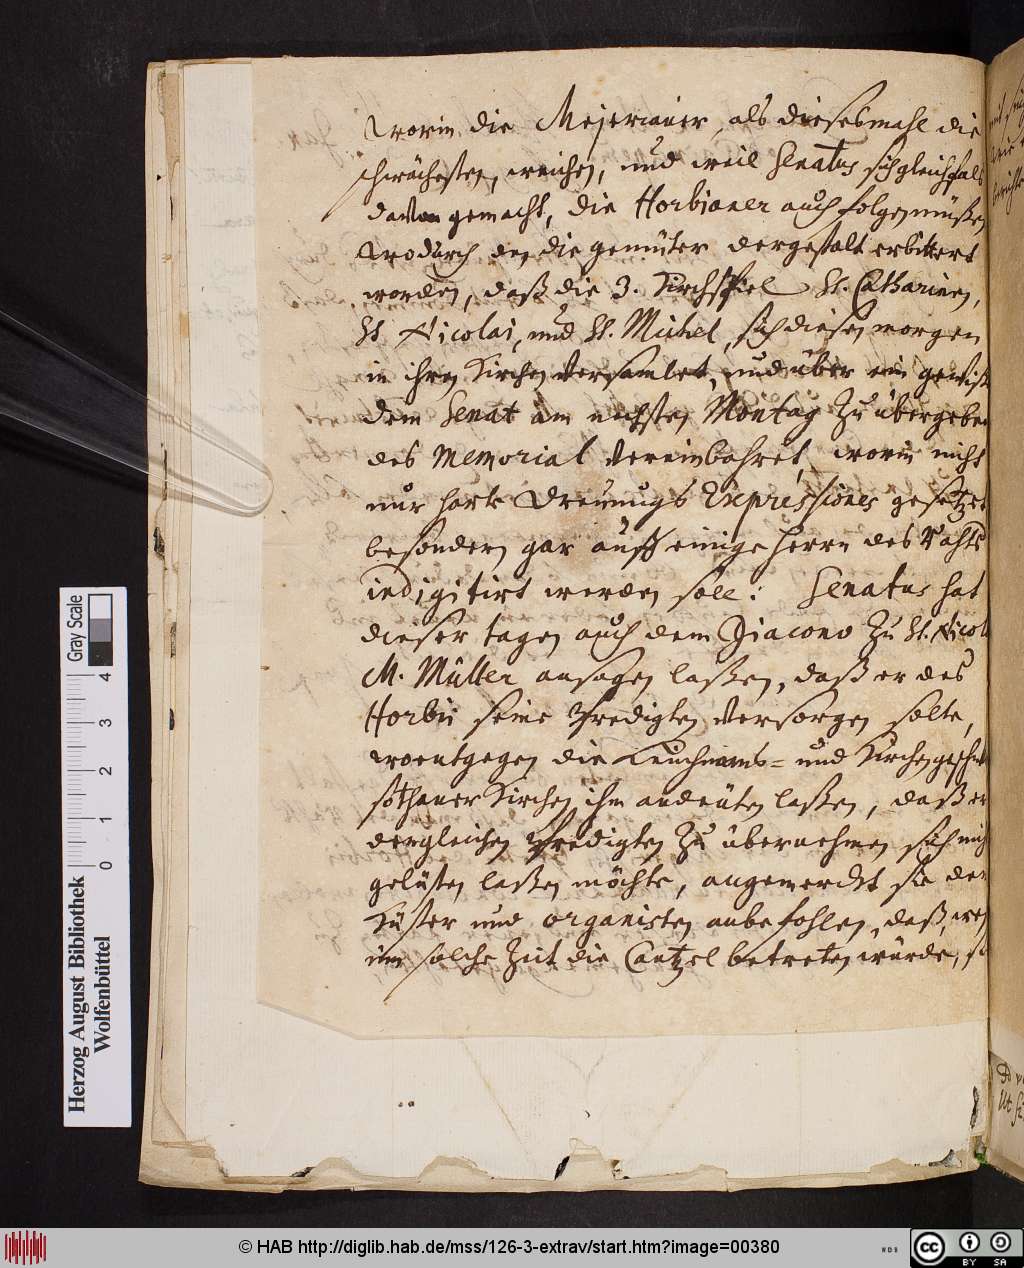 worin die Mejerianer, als diesesmahl die
schwächesten, weichen, und weil Senatus sich gleichfals
davon gemacht, die Horbianer auch folgen müßen
wodurch den die gemüter dergestalt erbittert
worden, daß die 3. Kirchspiel St. Catharinen,
St Nicolai, und St. Michel, sich diesen morgen
in ihren Kirchen versamlet, und über ein gewiß
dem Senat am nechsten Montag zu übergeben
des Memorial vereinbahret, worin nicht
nur harte Dreuungs Expressiones gesetzet
besondern gar auff einige Herrn des Rahts
indigitirt werden soll: Senatus hat
dieser tagen auch dem Diacono zu St. Nicol
M. Müller ansagen laßen, daß er des
Horbii seine Predigten versorgen solte,
woentgegen die und Kirchengeschw
sothaner Kirchen ihm andeüten laßen, daß er
dergleichen Predigten zu übernehmen sich nich
gelüsten laßen möchte, angemerckt sie den
Küster und organisten anbefohlen, daß, wen
um solche Zeit die Cantzel betreten würde, so
Gray Scale
0 1 2 3 4
Herzog August Bibliothek
Wolfenbüttel
© HAB http://diglib.hab.de/mss/126-3-extrav/start.htm?image=00380
WDB
CC BY SA